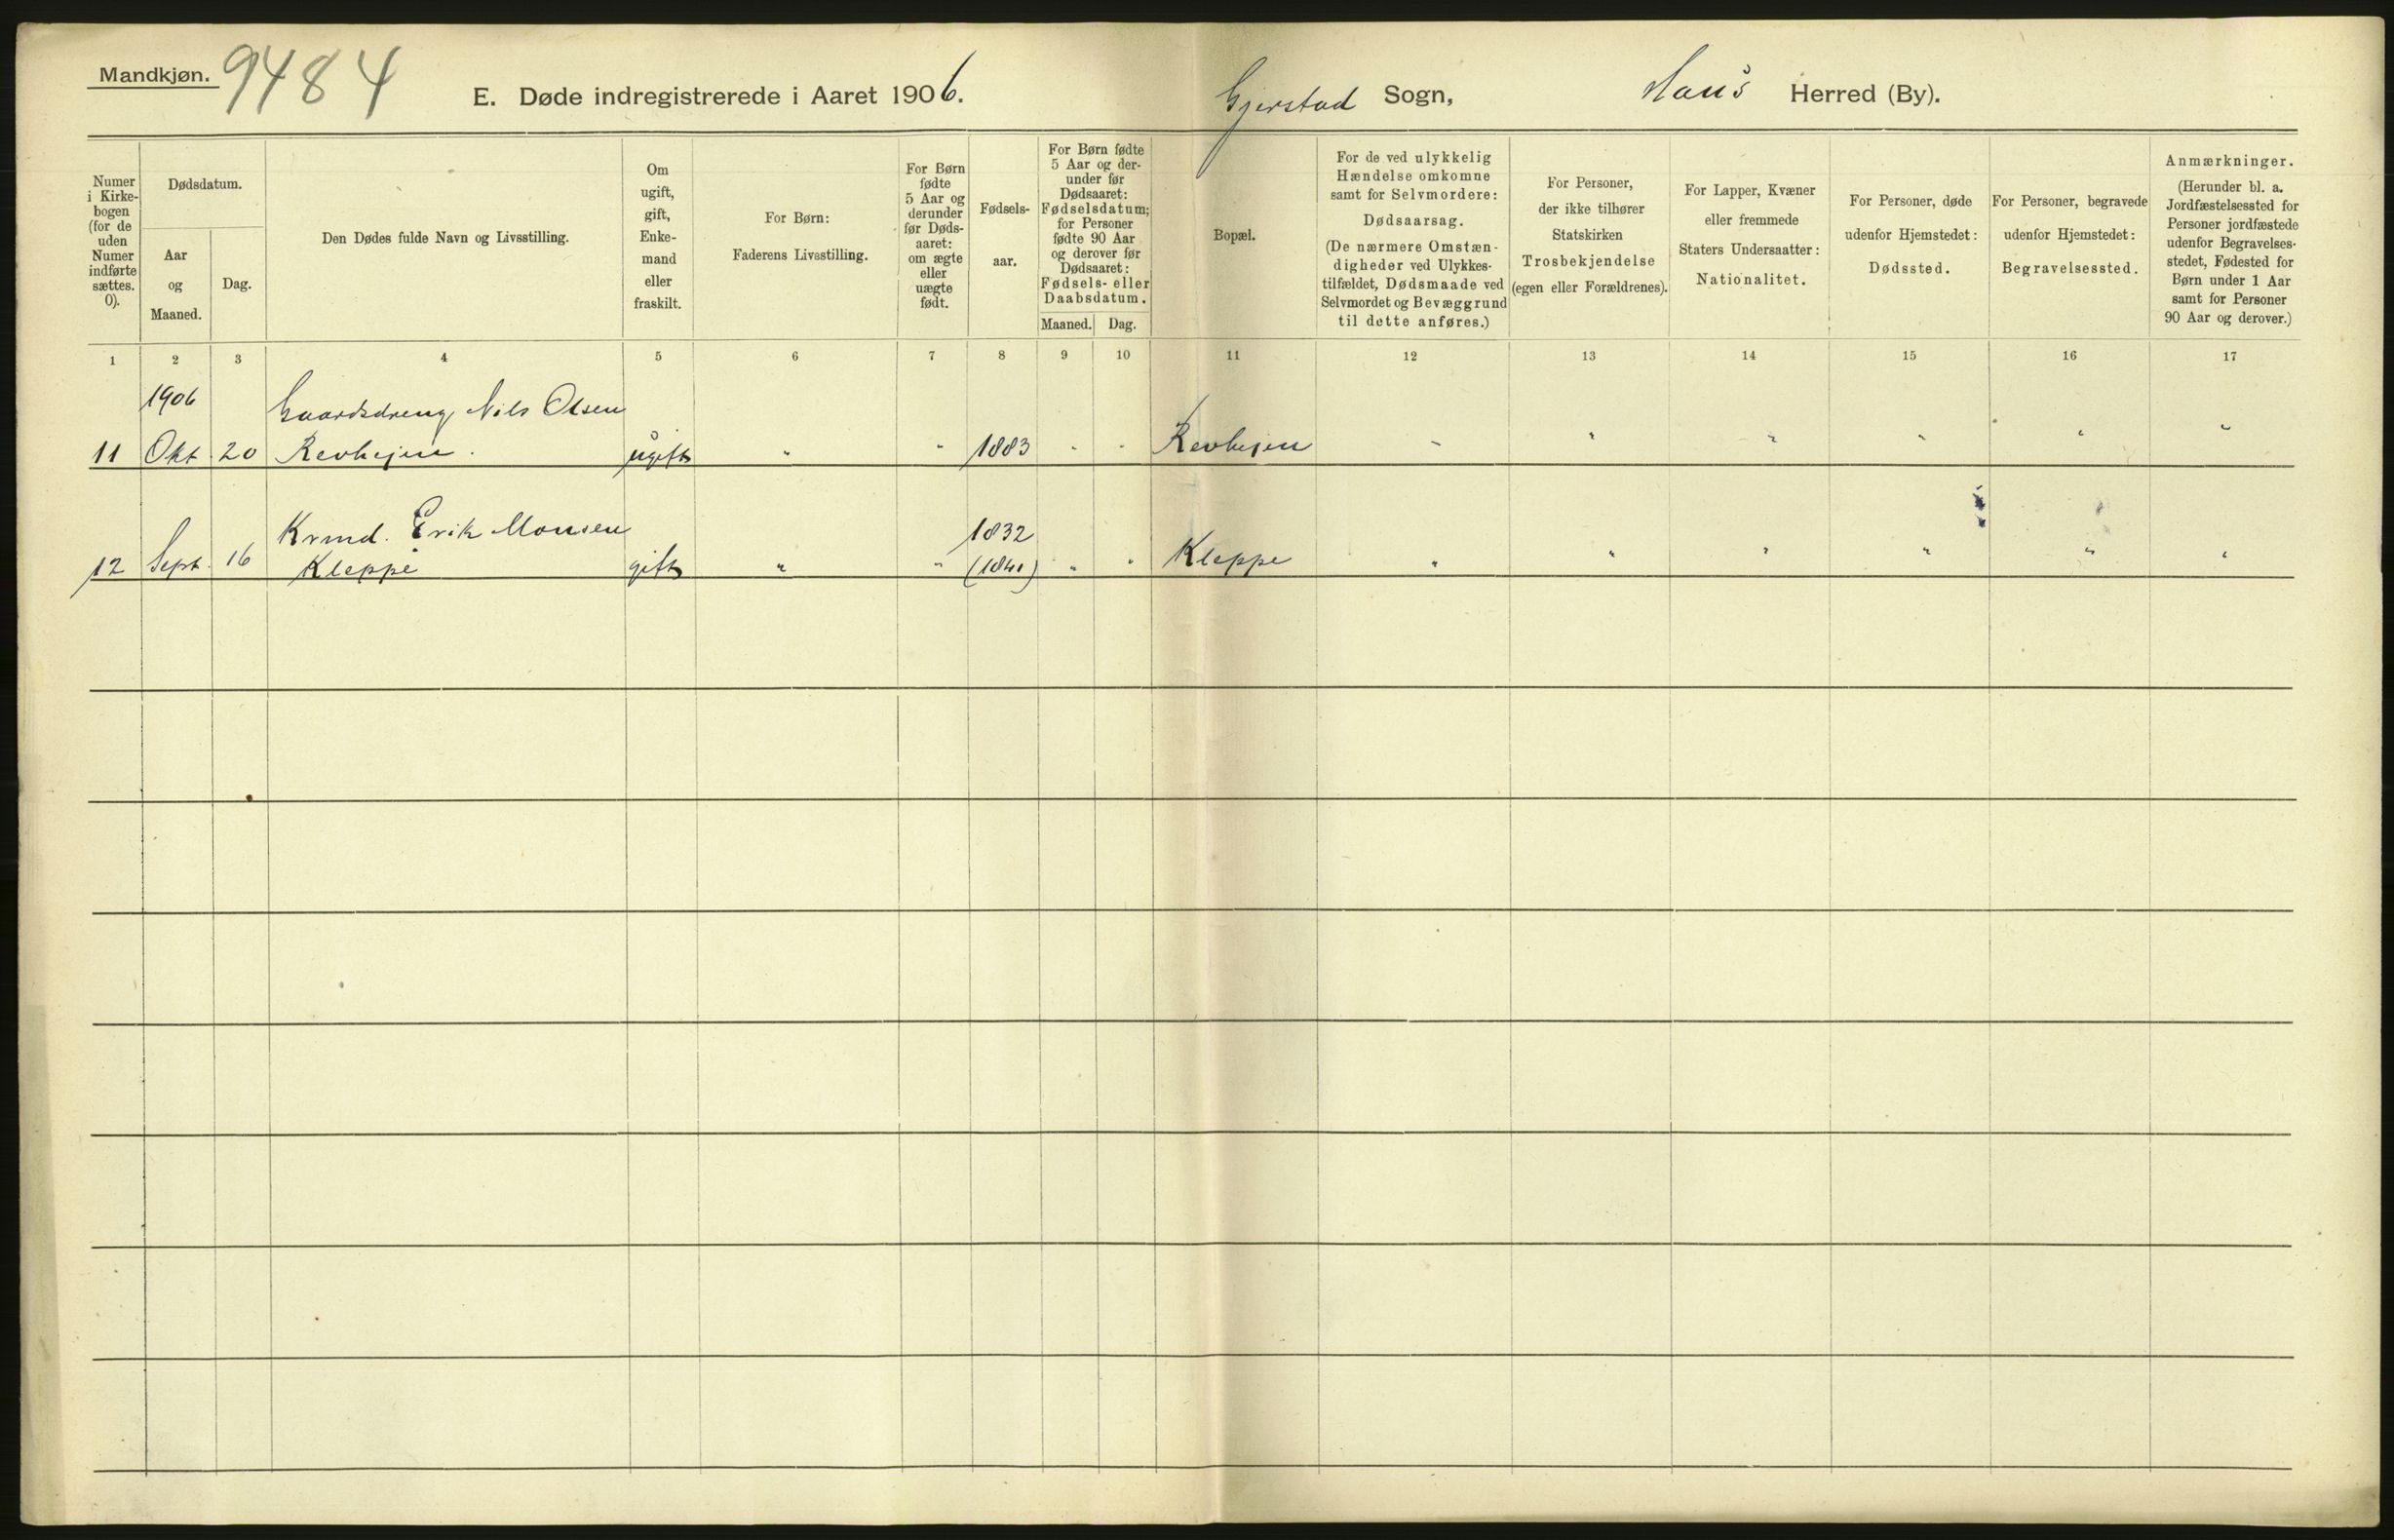 Mandkjøn.
9484
E. Døde indregistrerede i Aaret 1906.
Gjerstad Sogn,
Haus Herred (By).
Numer
i Kirke-
bogen
(for de
uden
Numer
indførte
sættes.
0).
Dødsdatum.
Aar
og
Maaned.
Dag.
Den Dødes fulde Navn og Livsstilling.
Om
ugift,
gift,
Enke-
mand
eller
fraskilt.
For Børn:
Faderens Livsstilling.
For Børn
fødte
5 Aar og
derunder
før Døds-
aaret:
om ægte
eller
uægte
født.
Fødsels-
aar.
For Børn fødte
5 Aar og der-
under før
Dødsaaret:
Fødselsdatum;
for Personer
fødte 90 Aar
og derover før
Dødsaaret:
Fødsels- eller
Daabsdatum.
Maaned.
Dag.
Bopæl.
For de ved ulykkelig
Hændelse omkomne
samt for Selvmordere:
Dødsaarsag.
(De nærmere Omstæn-
digheder ved Ulykkes-
tilfældet, Dødsmaade ved
Selvmordet og Bevæggrund
til dette anføres.)
For Personer,
der ikke tilhører
Statskirken
Trosbekjendelse
(egen eller Forældrenes).
For Lapper, Kvæner
eller fremmede
Staters Undersaatter:
Nationalitet.
For Personer, døde
udenfor Hjemstedet:
Dødssted.
For Personer, begravede
udenfor Hjemstedet:
Begravelsessted.
Anmærkninger.
(Herunder bl. a.
Jordfæstelsessted for
Personer jordfæstede
udenfor Begravelses-
stedet, Fødested for
Børn under 1 Aar
samt for Personer
90 Aar og derover.)
1 2 3 4 5 6 7 8 9 10 11 12 13 14 15 16 17
1906 Gaardsdreng Nils Olsen
11 Okt 20 Revhejen. ugift " " 1883 " " Revhejen " " " " " "
Krmd. Erik Monsen 1832
12 Sept. 16 Kleppe gift " " (1841) " " Kleppe " " " " " "